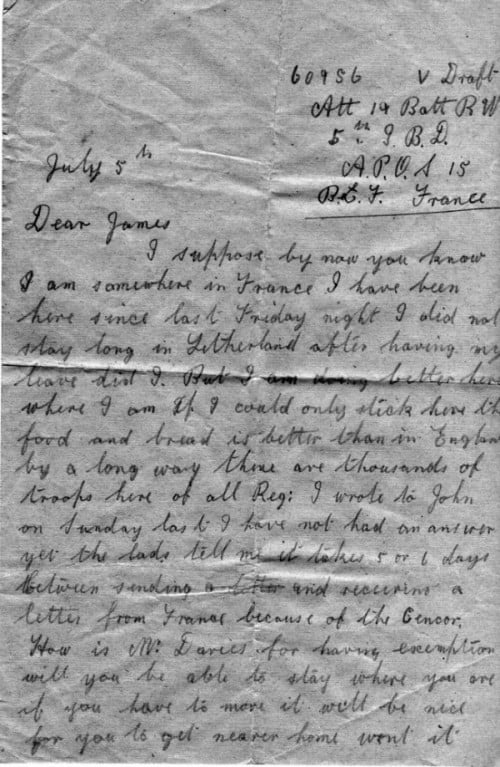 60956 V Draft
Att 14 Batt R W
5th I. B. D.
A.P.O. S 15
B.E.F. France
July 5th
Dear James
I suppose by now you know
I am somewhere in France I have been
here since last Friday night I did not
stay long in Litherland after having my
leave did I. But I am doing better here
where I am If I could only stick here th
food and bread is better than in England
by a long way there are thousands of
troops here of all Reg: I wrote to John
on Sunday last I have not had an answer
yet the lads tell me it takes 5 or 6 days
between sending a letter and receiving a
letter from France because of the Cencor.
How is Mr Davies for having exemption
will you be able to stay where you are
if you have to move it will be nice
for you to get nearer home wont it